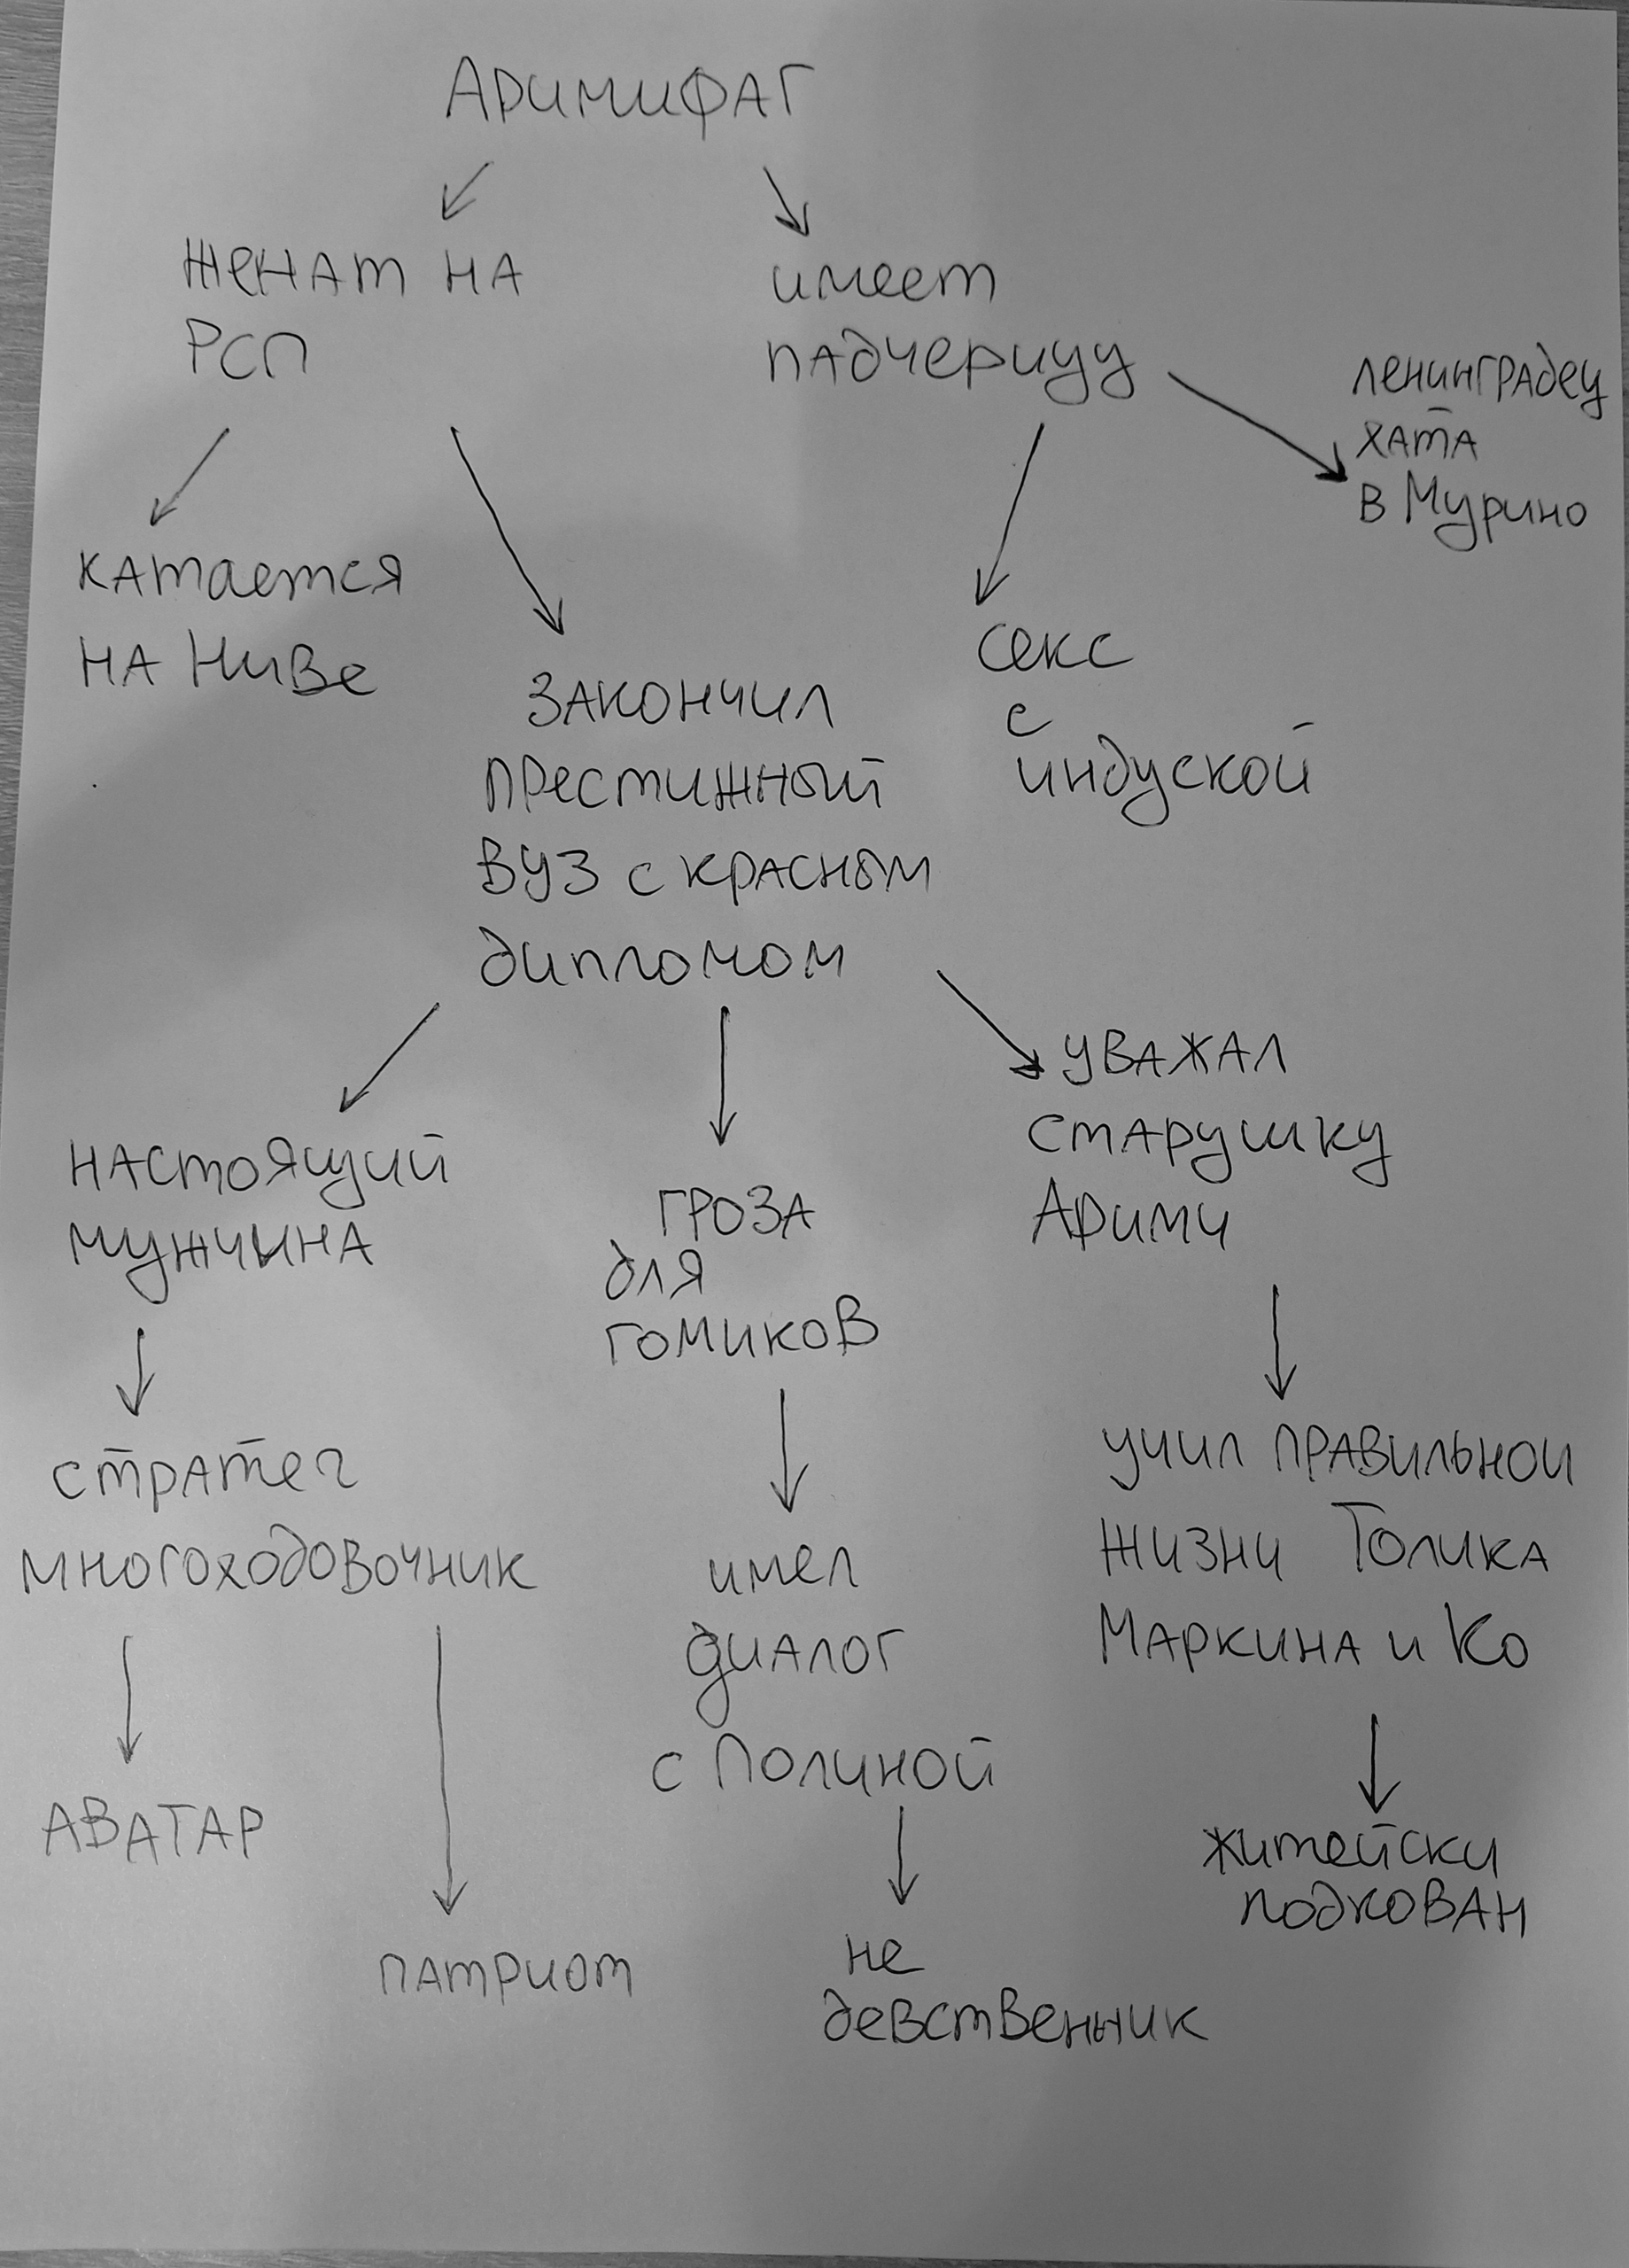 Аримифаг
женат на
РСП
имеет
падчерицу
ленинградец
хата
в Мурино
катается
на Ниве
закончил
престижный
ВУЗ с красным
дипломом
секс
с
индуской
настоящий
мужчина
гроза
для
гомиков
уважал
старушку
Арими
стратег
многоходовочник
имел
диалог
с Полиной
учил правильной
жизни Толика
Маркина и Ко
АВАТАР
патриот
не
девственник
житейски
подкован